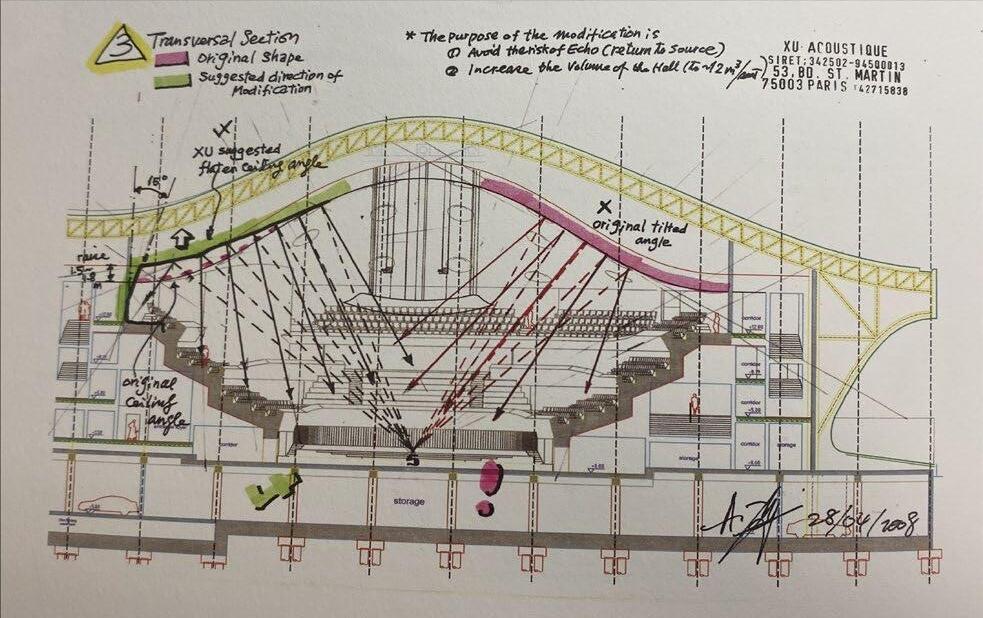 3
Transversal Section
original shape
Suggested direction of
Modification
* The purpose of the modification is
① Avoid the risk of Echo (return to source)
② Increase the Volume of the Hall (to ~12 m³/
XU ACOUSTIQUE
SIRET:342502-94500013
53, BD. ST. MARTIN
75003 PARIS
42715838
X
XU suggested
flaten ceiling angle
15°
X
original tilted
angle
raise
m
original
ceiling
angle
corridor
corridor
corridor
corridor
corridor
storage
storage
storage
S
28/04/2008